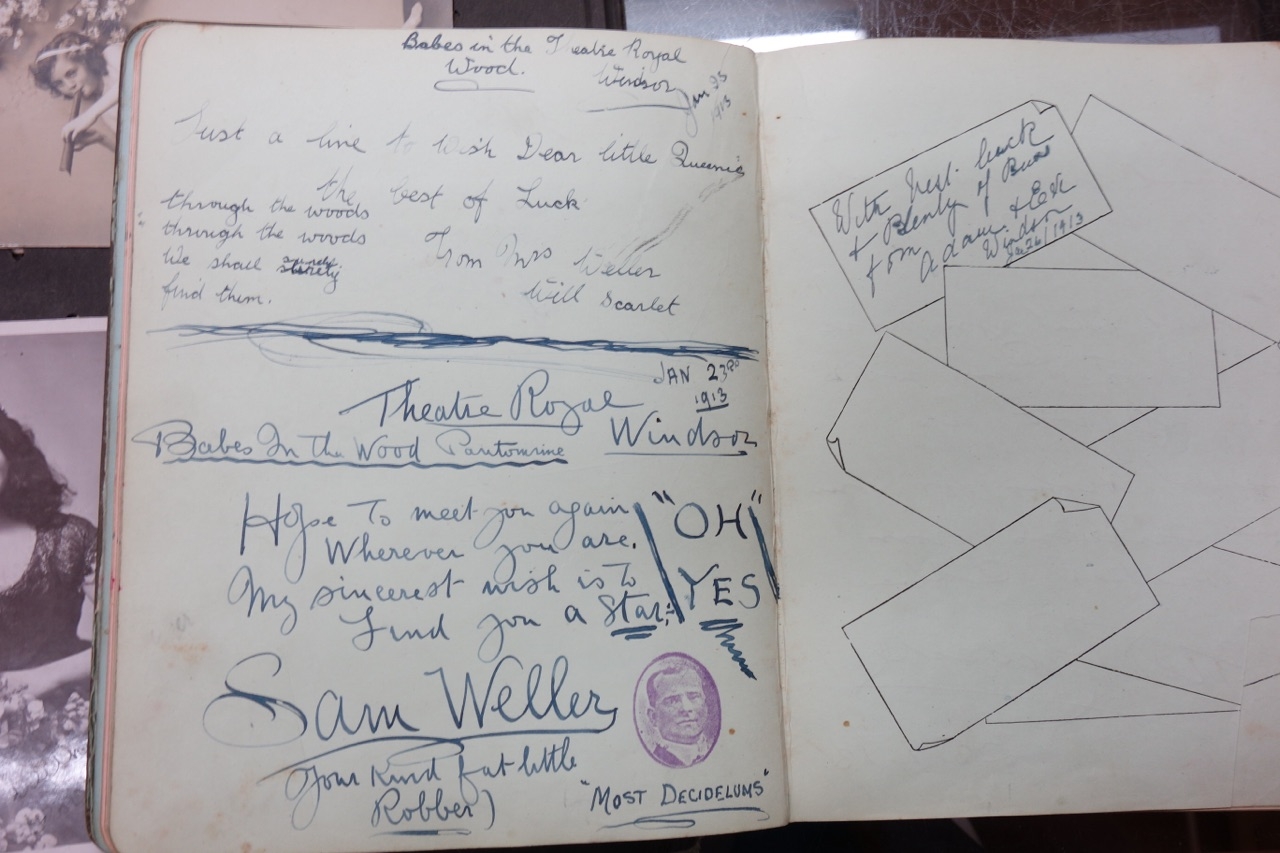 Babes in the Theatre Royal
Wood. Windsor
Jan 23
1913
Just a line to Wish Dear little Queenie
the best of Luck
through the woods
through the woods
We shall surely
find them.
From Mrs Weller
Will Scarlet
JAN 23RD
1913
Theatre Royal
Windsor
Babes In the Wood Pantomime
Hope To meet you again
Wherever you are.
My sincerest wish is To
Find you a Star,
"OH"
YES
Sam Weller
(Your Kind fat little
Robber)
"MOST DECIDELUMS"
With best luck
+ Plenty of
from
Adam +
Windsor
Jan 26/1913